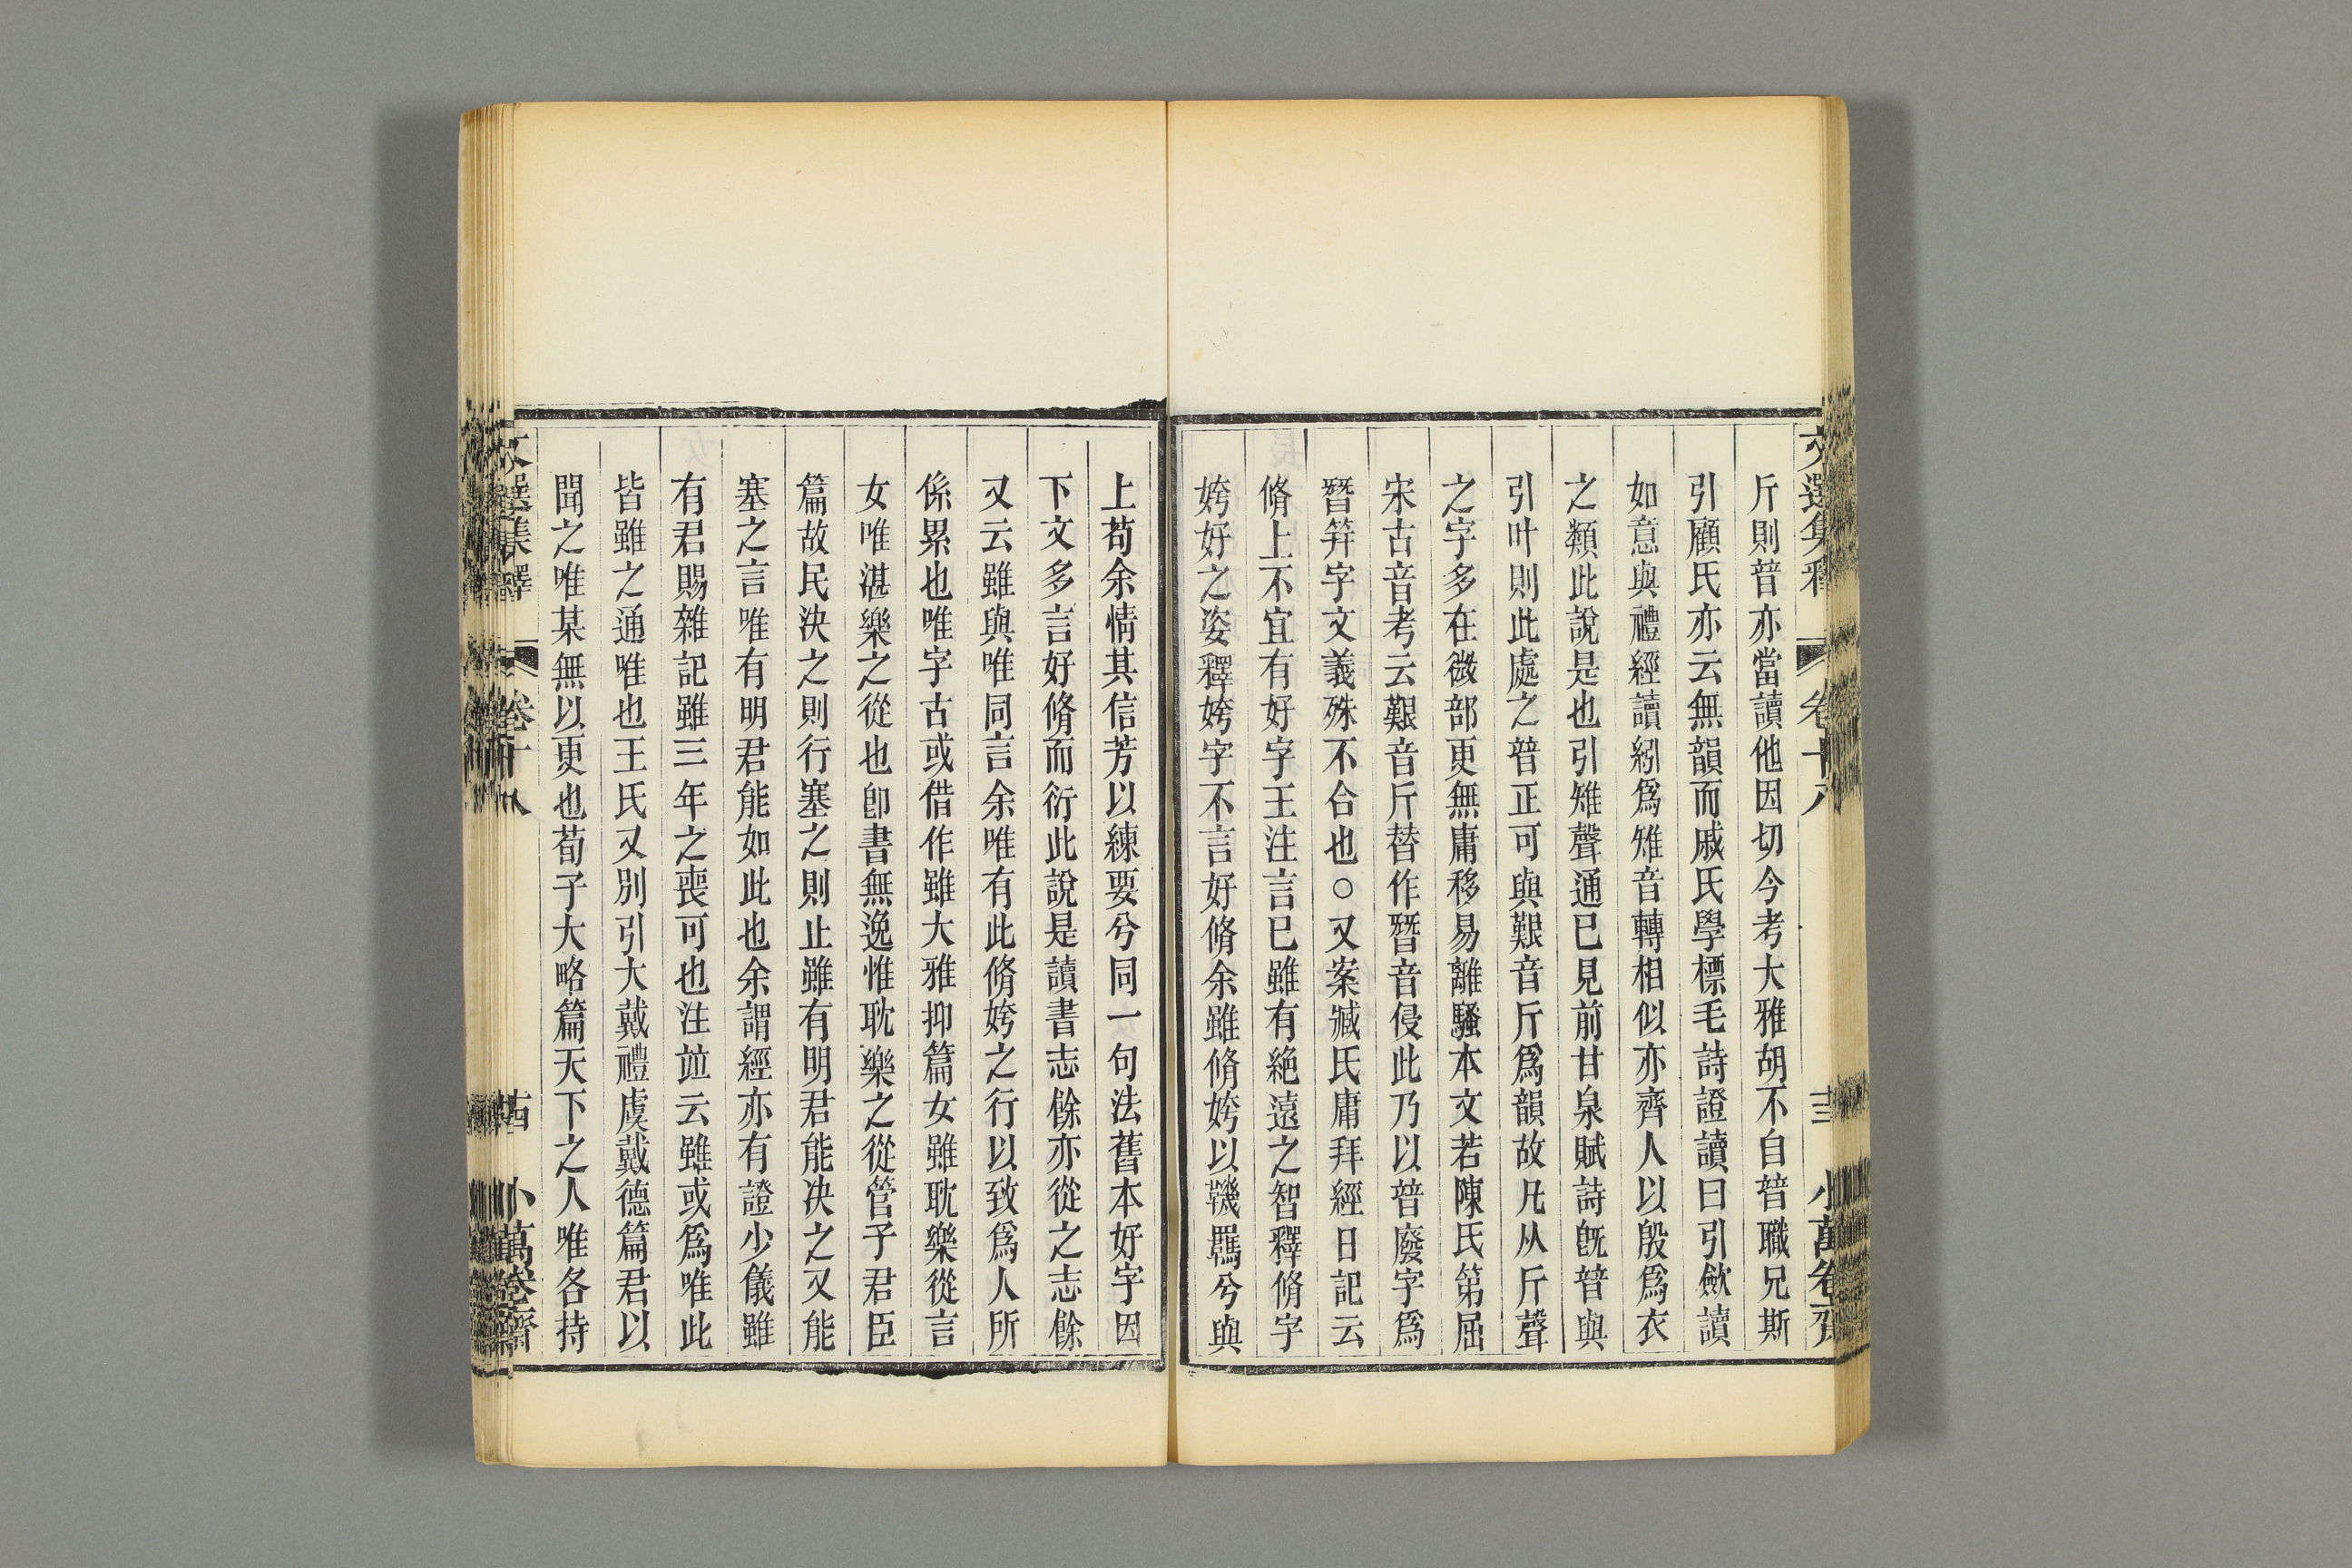 文選集釋 卷十八 十三 小萬卷齋
斤則朁亦當讀他因切今考大雅胡不自朁職兄斯
引顧氏亦云無韻而戚氏學標毛詩證讀曰引歛讀
如意與禮經讀紖爲雉音轉相似亦齊人以殷爲衣
之類此說是也引雉聲通已見前甘泉賦詩旣朁與
引叶則此處之朁正可與艱音斤爲韻故凡从斤聲
之字多在微部更無庸移易離騷本文若陳氏第屈
宋古音考云艱音斤替作朁音侵此乃以朁廢字爲
朁笄字文義殊不合也○又案臧氏庸拜經日記云
脩上不宜有好字王注言已雖有絶遠之智釋脩字
姱好之姿釋姱字不言好脩余雖脩姱以鞿羈兮與
上苟余情其信芳以練要兮同一句法舊本好字因
下文多言好脩而衍此說是讀書志餘亦從之志餘
又云雖與唯同言余唯有此脩姱之行以致爲人所
係累也唯字古或借作雖大雅抑篇女雖耽樂從言
女唯湛樂之從也卽書無逸惟耽樂之從管子君臣
篇故民決之則行塞之則止雖有明君能決之又能
塞之言唯有明君能如此也余謂經亦有證少儀雖
有君賜雜記雖三年之喪可也注竝云雖或爲唯此
皆雖之通唯也王氏又別引大戴禮虞戴德篇君以
聞之唯某無以更也荀子大略篇天下之人唯各持
文選集釋 卷十八 十四 小萬卷齋